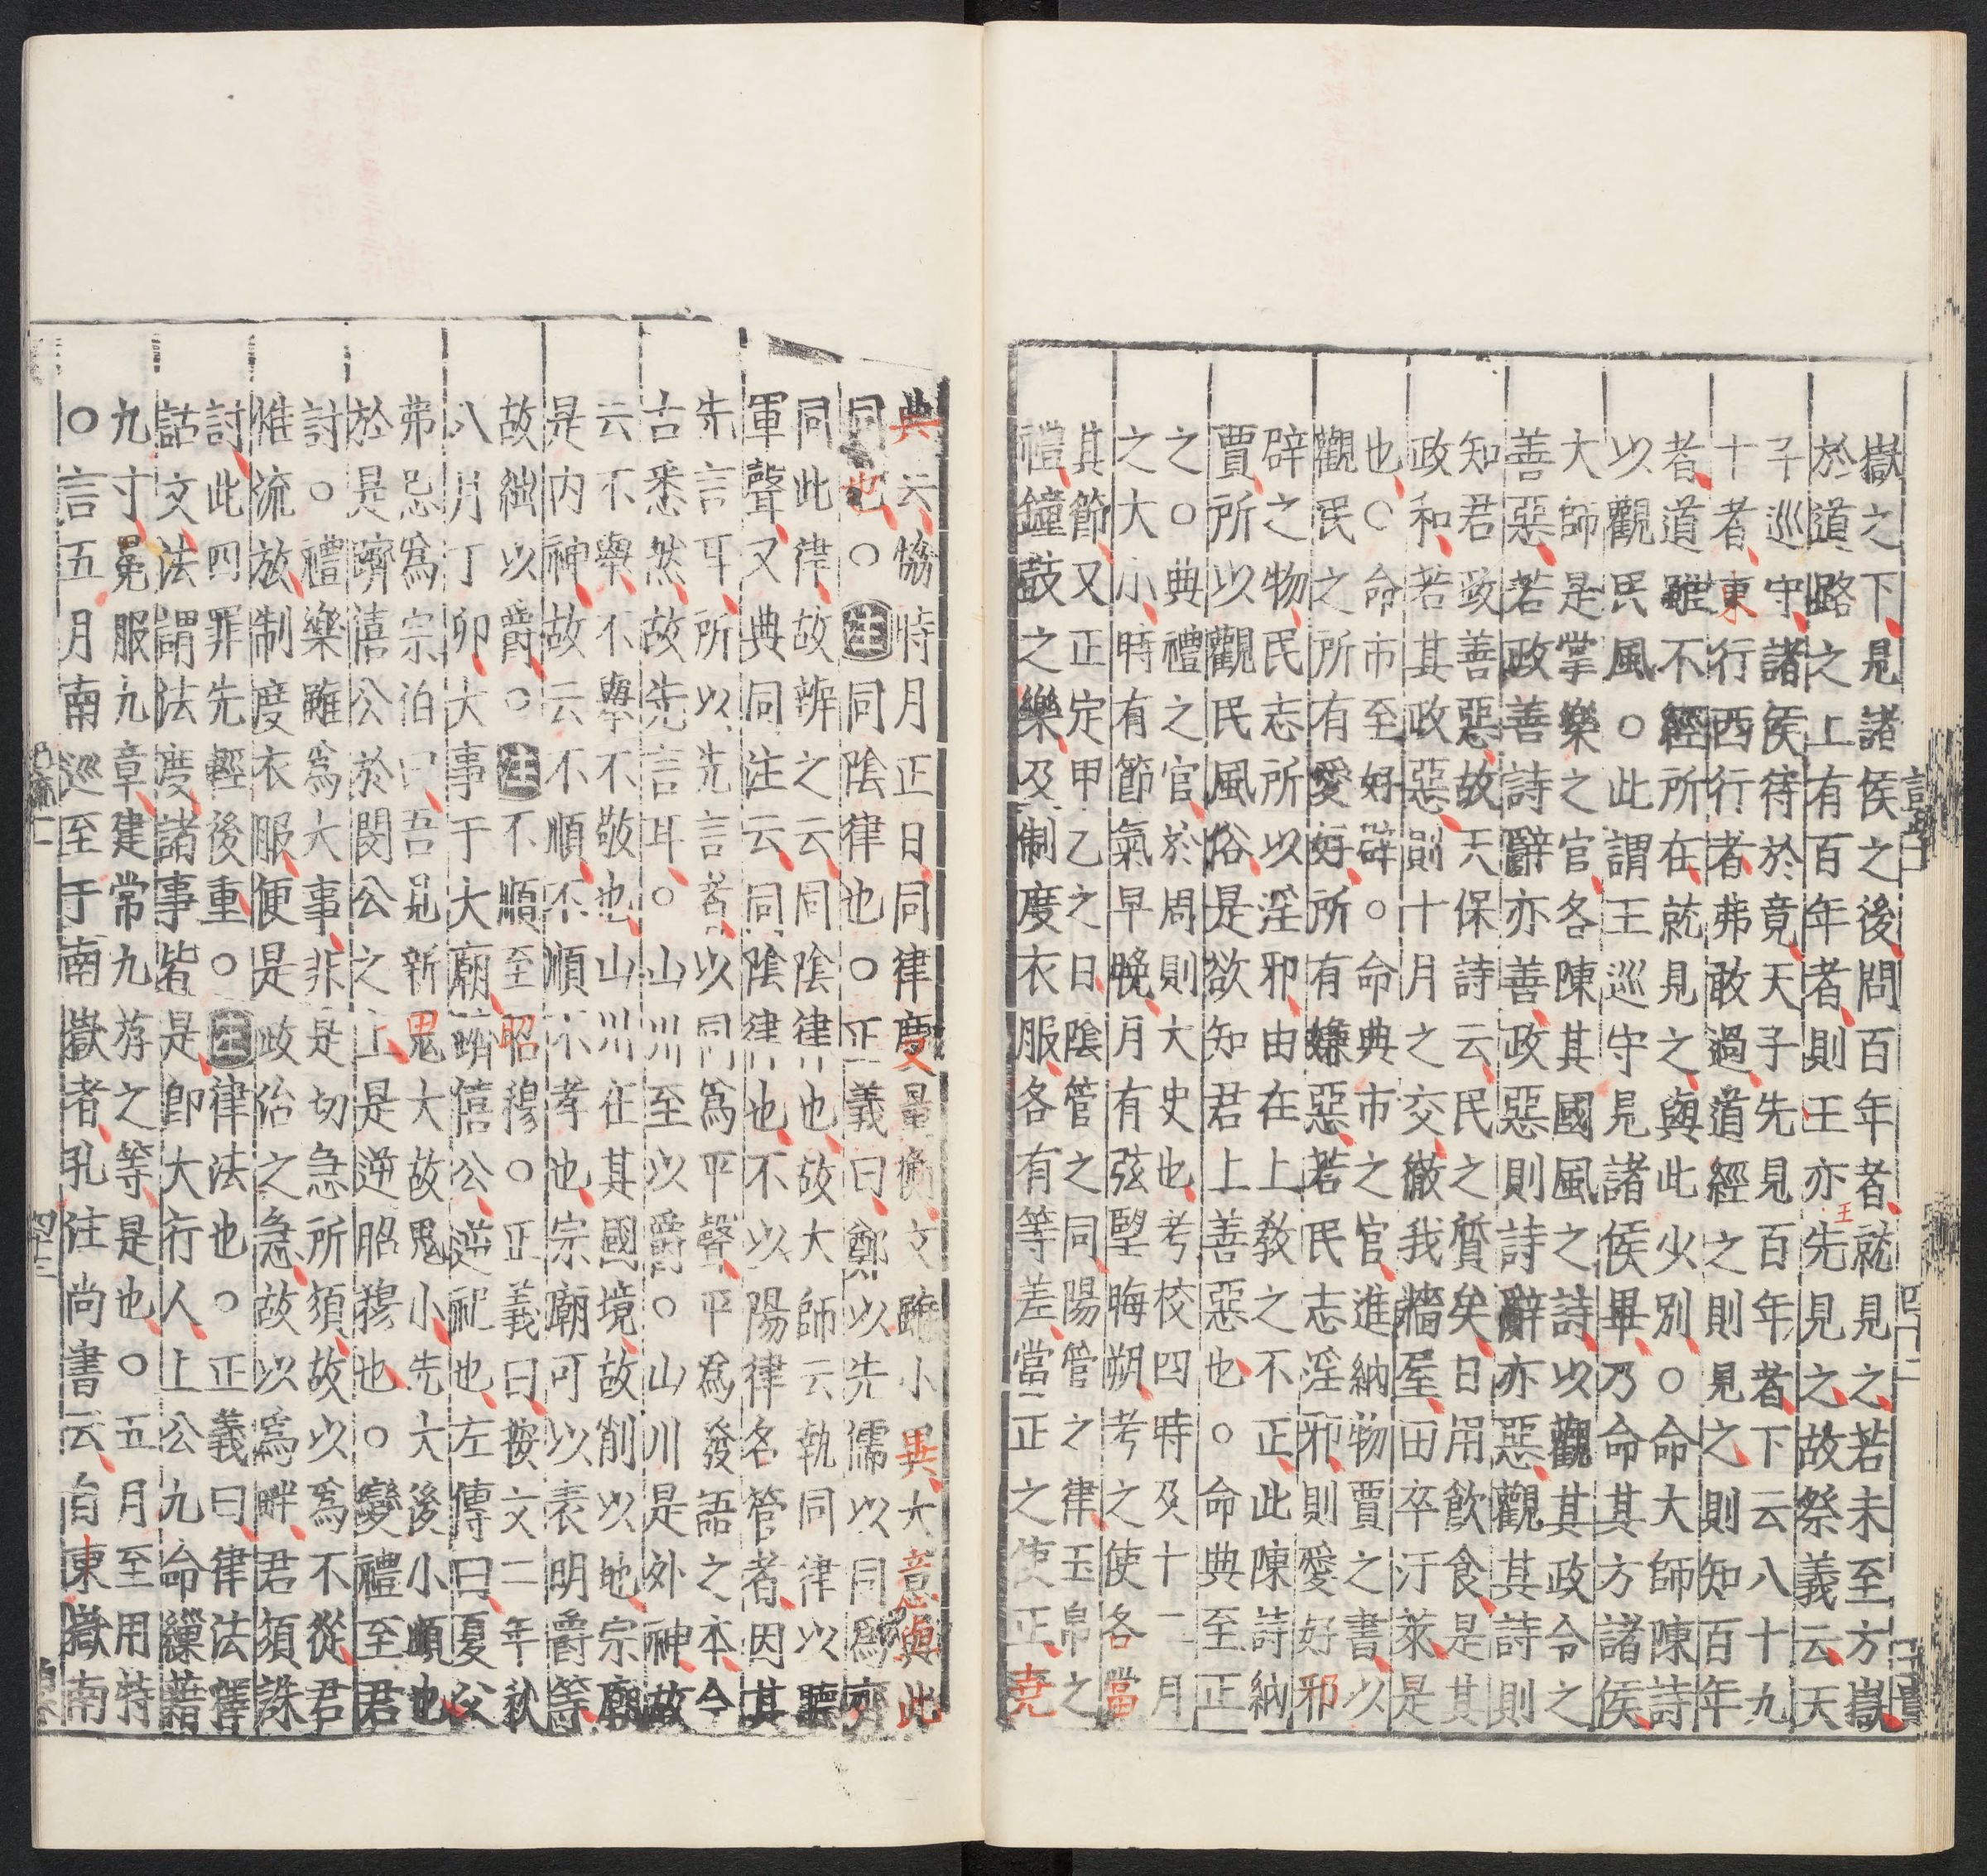 嶽之下見諸侯之後問百年者就見之若未至方嶽
於道路之上有百年者則王亦先見之故祭義云天
子巡守諸侯待於竟天子先見百年者下云八十九
十者東行西行者弗敢過道經之則見之則知百年
者道雖不經所在就見之與此少別○命大師陳詩
以觀民風○此謂王巡守見諸侯畢乃命其方諸侯
大師是掌樂之官各陳其國風之詩以觀其政令之
善惡若政善詩辭亦善政惡則詩辭亦惡觀其詩則
知君政善惡故天保詩云民之質矣日用飲食是其
政和若其政惡則十月之交徹我牆屋田卒汙萊是
也○命市至好辟○命典市之官進納物賈之書以
觀民之所有愛好所有嫌惡若民志淫邪則愛好邪
辟之物民志所以淫邪由在上敎之不正此陳詩納
賈所以觀民風俗是欲知君上善惡也○命典至正
之○典禮之官於周則大史也考校四時及十二月
之大小時有節氣早晚月有弦望晦朔考之使各當
其節又正定甲乙之日陰管之同陽管之律玉帛之
禮鐘鼓之樂及制度衣服各有等差當正之使正堯
典云恊時月正日同律度量衡文雖小異大意與此
同也○注同陰律也○正義曰鄭以先儒以同爲齊
同此律故辨之云同陰律也故大師云執同律以聽
軍聲又典同注云同陰律也不以陽律名管者因其
先言耳所以先言者以同爲平聲平爲發語之本今
古悉然故先言耳○山川至以爵○山川是外神故
云不舉不舉不敬也山川在其國境故削以地宗廟
是内神故云不順不順不孝也宗廟可以表明爵等
故絀以爵○注不順至昭穆○正義曰按文二年秋
八月丁卯大事于大廟躋僖公逆祀也左傳曰夏父
弗忌爲宗伯曰吾見新鬼大故鬼小先大後小順也
於是躋僖公於閔公之上是逆昭穆也○變禮至君
討○禮樂雖爲大事非是切急所須故以爲不從君
惟流放制度衣服便是政治之急故以爲畔君須誅
討此四罪先輕後重○注律法也○正義曰律法釋
詁文法謂法度諸事皆是即大行人上公九命繅藉
九寸冕服九章建常九斿之等是也○五月至用特
○言五月南巡至于南嶽者孔注尚書云自東嶽南